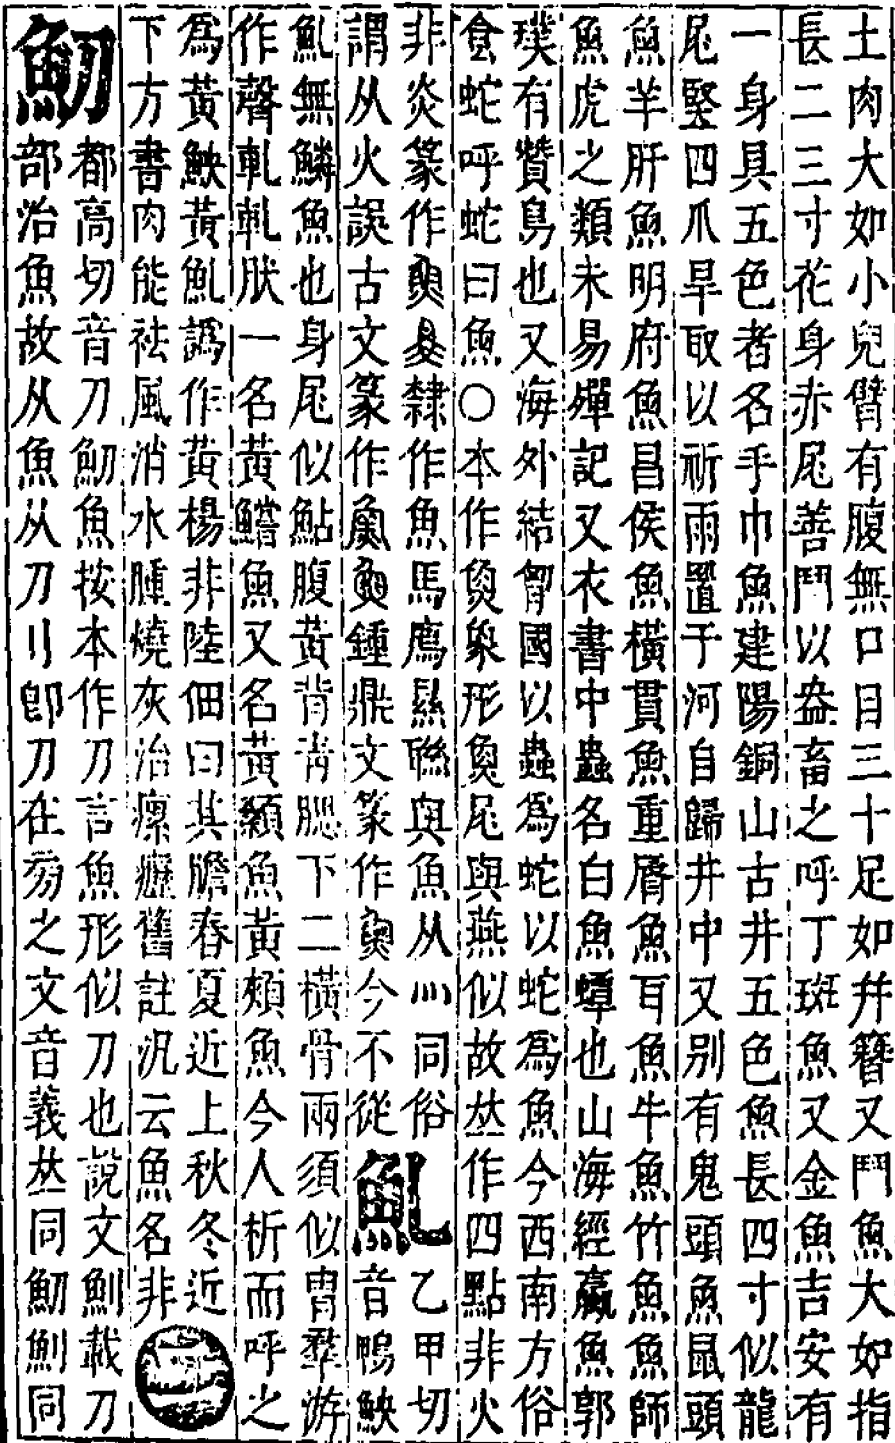 土肉大如小兒臂有腹無口目三十足如幷簪又鬥魚大如指
長二三寸花身赤尾善鬥以盎畜之呼丁斑魚又金魚吉安有
一身具五色者名手巾魚建陽銅山古井五色魚長四寸似龍
尾豎四爪旱取以祈雨置于河自歸井中又别有鬼頭魚鼠頭
魚羊肝魚明府魚昌侯魚橫貫魚重脣魚耳魚牛魚竹魚魚師
魚虎之類未易殫記又衣書中蟲名白魚蟫也山海經蠃魚郭
璞有贊鳥也又海外結胷國以蟲爲蛇以蛇爲魚今西南方俗
食蛇呼蛇曰魚○本作𤋳象形𤋳尾與燕似故𠀤作四點非火
非炎篆作𤋳𤋳隸作魚馬廌㬎聯與魚从灬同俗
謂从火誤古文篆作𤋳𤋳鍾鼎文篆作𤋳今不從
魟
乙甲切
音鴨鉠
魟無鱗魚也身尾似鮎腹黃背靑腮下二橫骨兩須似胃羣游
作聲軋軋肰一名黃鱨魚又名黃顙魚黃頰魚今人析而呼之
爲黃鉠黃魟譌作黃楊非陸佃曰其膽春夏近上秋冬近
下方書肉能袪風消水腫燒灰治瘰癧舊註汎云魚名非
魛
都高切音刀魛魚按本作刀言魚形似刀也說文魝載刀
部治魚故从魚从刀刂卽刀在旁之文音義𠀤同魛魝同